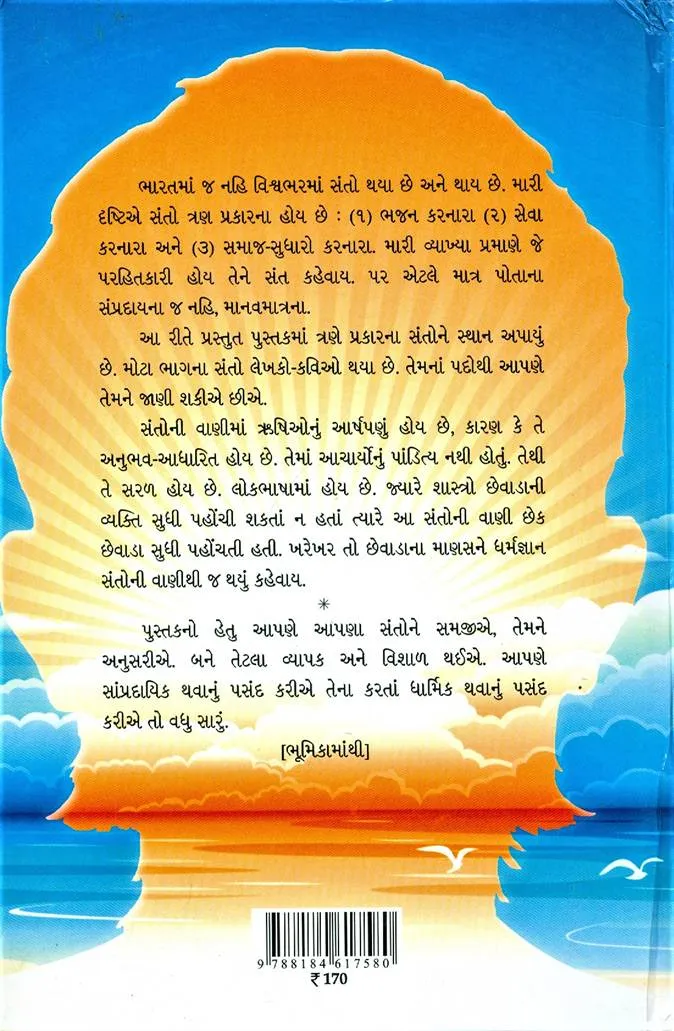 ભારતમાં જ નહિ વિશ્વભરમાં સંતો થયા છે અને થાય છે. મારી
દૃષ્ટિએ સંતો ત્રણ પ્રકારના હોય છે : (૧) ભજન કરનારા (૨) સેવા
કરનારા અને (૩) સમાજ-સુધારો કરનારા. મારી વ્યાખ્યા પ્રમાણે જે
પરહિતકારી હોય તેને સંત કહેવાય. પર એટલે માત્ર પોતાના
સંપ્રદાયના જ નહિ, માનવમાત્રના.
આ રીતે પ્રસ્તુત પુસ્તકમાં ત્રણે પ્રકારના સંતોને સ્થાન અપાયું
છે. મોટા ભાગના સંતો લેખકો-કવિઓ થયા છે. તેમનાં પદોથી આપણે
તેમને જાણી શકીએ છીએ.
સંતોની વાણીમાં ઋષિઓનું આર્ષપણું હોય છે, કારણ કે તે
અનુભવ-આધારિત હોય છે. તેમાં આચાર્યોનું પાંડિત્ય નથી હોતું. તેથી
તે સરળ હોય છે. લોકભાષામાં હોય છે. જ્યારે શાસ્ત્રો છેવાડાની
વ્યક્તિ સુધી પહોંચી શકતાં ન હતાં ત્યારે આ સંતોની વાણી છેક
છેવાડા સુધી પહોંચતી હતી. ખરેખર તો છેવાડાના માણસને ધર્મજ્ઞાન
સંતોની વાણીથી જ થયું કહેવાય.
*
પુસ્તકનો હેતુ આપણે આપણા સંતોને સમજીએ, તેમને
અનુસરીએ. બને તેટલા વ્યાપક અને વિશાળ થઈએ. આપણે
સાંપ્રદાયિક થવાનું પસંદ કરીએ તેના કરતાં ધાર્મિક થવાનું પસંદ
કરીએ તો વધુ સારું.
[ભૂમિકામાંથી]
9 788184 617580
₹ 170